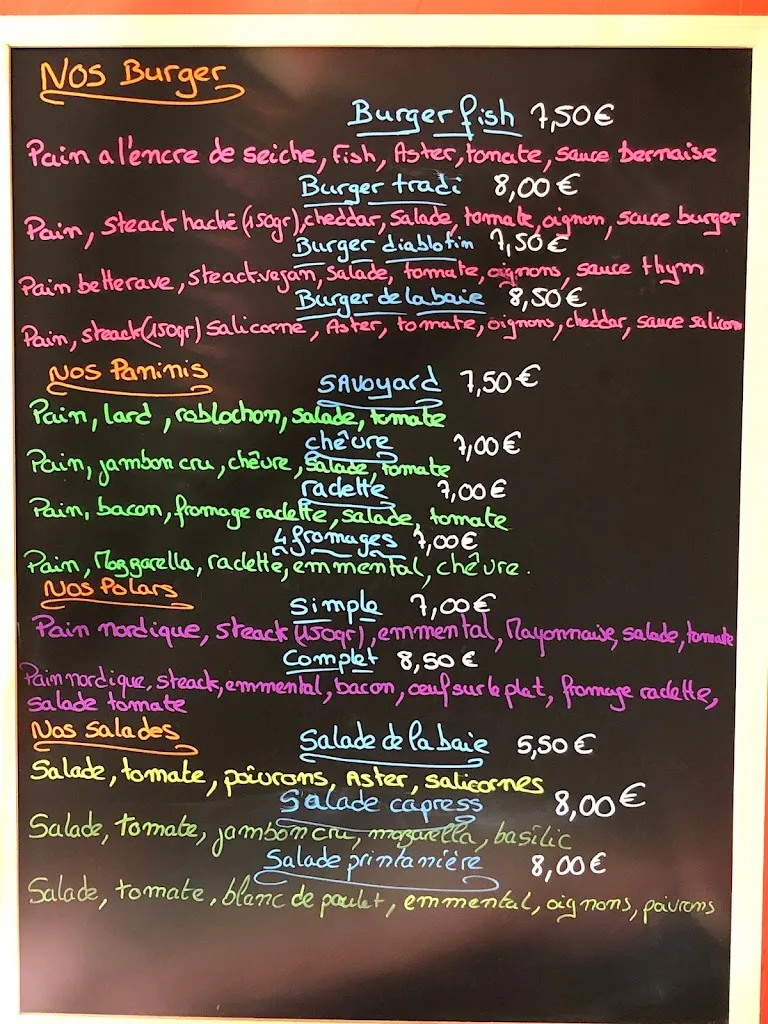 Nos Burger
Burger fish 7,50€
Pain a l'encre de seiche, Fish, Aster, tomate, sauce bernaise
Burger tradi 8,00€
Pain, steack haché (150gr), cheddar, salade, tomate, oignon, sauce burger
Burger diablotin 7,50€
Pain betterave, steack vegan, salade, tomate, oignons, sauce thym
Burger de la baie 8,50€
Pain, steack (150gr) salicorne, Aster, tomate, oignons, cheddar, sauce salicorn
Nos Paninis
SAvoyard 7,50€
Pain, lard, roblochon, salade, tomate
chêvre 7,00€
Pain, jambon cru, chêvre, salade, tomate
raclette 7,00€
Pain, bacon, fromage raclette, salade, tomate
4 fromages 7,00€
Pain, Mozzarella, raclette, emmental, chêvre.
Nos Polars
Simple 7,00€
Pain nordique, steack (150gr), emmental, Mayonnaise, salade, tomate
Complet 8,50€
Pain nordique, steack, emmental, bacon, œuf sur le plat, fromage raclette,
salade tomate
Nos Salades
Salade de la baie 5,50€
Salade, tomate, poivrons, Aster, salicornes
Salade capress 8,00€
Salade, tomate, jambon cru, mozarella, basilic
Salade printanière 8,00€
Salade, tomate, blanc de poulet, emmental, oignons, poivrons